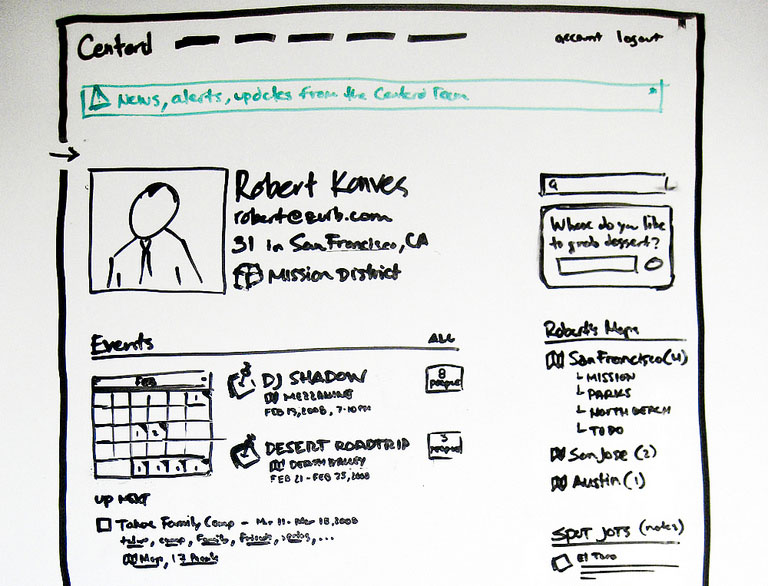 Centerd
account logout
News, alerts, updates from the Centerd Team
Robert Konves
robert@zurb.com
31 in San Francisco, CA
Mission District
Where do you like
to grab dessert?
Events ALL
FEB
DJ SHADOW
MEZZANINE
FEB 19, 2008, 7-10PM
8
people
DESERT ROADTRIP
DEATH VALLEY
FEB 21 - FEB 25, 2008
3
people
UP NEXT
Tahoe Family Camp - Mar 11 - Mar 18, 2008
tahoe, camp, Family, Friends, ...
Map, 17 People
Robert's Maps
San Francisco (4)
MISSION
PARKS
NORTH BEACH
TO DO
San Jose (2)
Austin (1)
SPOT JOTS (notes)
El Toro